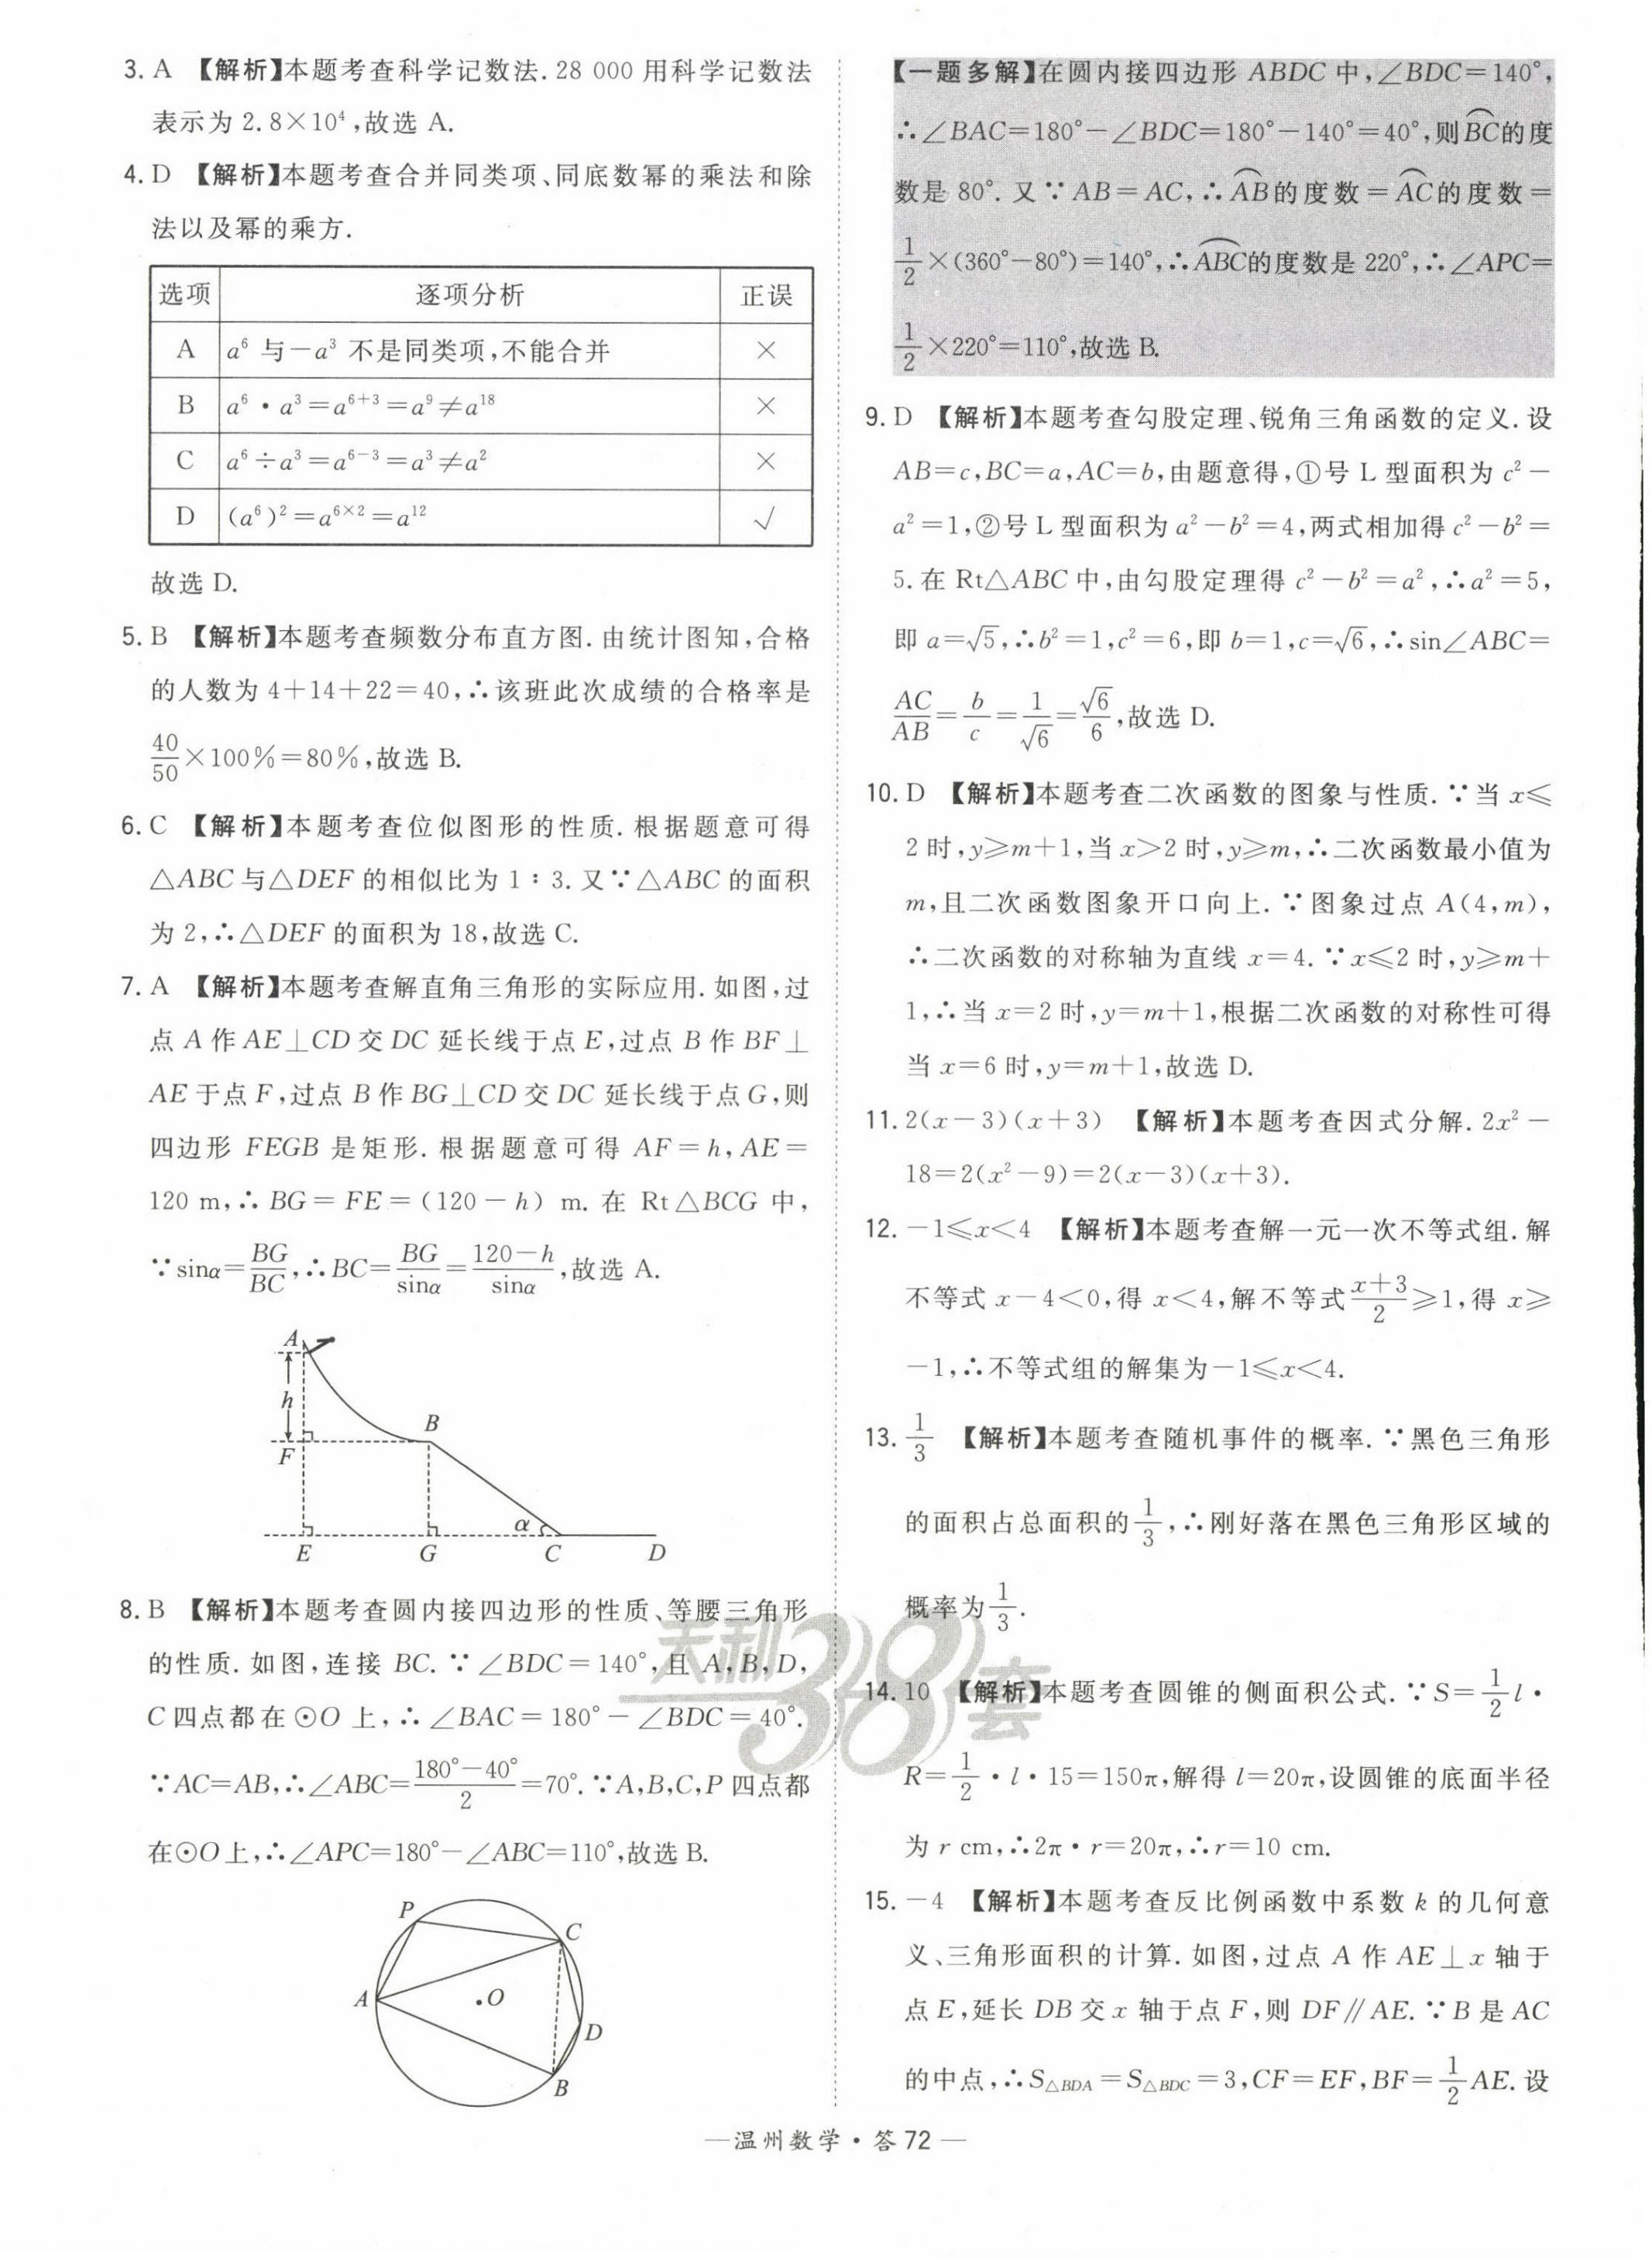 3. A 【解析】本题考查科学记数法. 28 000 用科学记数法
表示为 2.8×10⁴,故选 A.
4. D 【解析】本题考查合并同类项、同底数幂的乘法和除
法以及幂的乘方.
选项 逐项分析 正误
A a⁶ 与-a³ 不是同类项,不能合并 ×
B a⁶·a³=a⁶⁺³=a⁹≠a¹⁸ ×
C a⁶÷a³=a⁶⁻³=a³≠a² ×
D (a⁶)²=a⁶ˣ²=a¹² √
故选 D.
5. B 【解析】本题考查频数分布直方图. 由统计图知,合格
的人数为 4+14+22=40,∴该班此次成绩的合格率是
40/50×100%=80%,故选 B.
6. C 【解析】本题考查位似图形的性质. 根据题意可得
△ABC 与△DEF 的相似比为 1∶3. 又∵△ABC 的面积
为 2,∴△DEF 的面积为 18,故选 C.
7. A 【解析】本题考查解直角三角形的实际应用. 如图,过
点 A 作 AE⊥CD 交 DC 延长线于点 E,过点 B 作 BF⊥
AE 于点 F,过点 B 作 BG⊥CD 交 DC 延长线于点 G,则
四边形 FEGB 是矩形. 根据题意可得 AF=h,AE=
120 m,∴BG=FE=(120-h) m. 在 Rt△BCG 中,
∵sinα=BG/BC,∴BC=BG/sinα=(120-h)/sinα,故选 A.
A
h
B
F
α
E G C D
8. B 【解析】本题考查圆内接四边形的性质、等腰三角形
的性质. 如图,连接 BC. ∵∠BDC=140°,且 A,B,D,
C 四点都在⊙O 上,∴∠BAC=180°-∠BDC=40°.
∵AC=AB,∴∠ABC=(180°-40°)/2=70°. ∵A,B,C,P 四点都
在⊙O上,∴∠APC=180°-∠ABC=110°,故选 B.
P
C
A
O
D
B
【一题多解】在圆内接四边形 ABDC 中,∠BDC=140°,
∴∠BAC=180°-∠BDC=180°-140°=40°,则⌒BC的度
数是 80°. 又∵AB=AC,∴⌒AB的度数=⌒AC的度数=
1/2×(360°-80°)=140°,∴⌒ABC的度数是 220°,∴∠APC=
1/2×220°=110°,故选 B.
9. D 【解析】本题考查勾股定理、锐角三角函数的定义. 设
AB=c,BC=a,AC=b,由题意得,①号 L 型面积为 c²-
a²=1,②号 L 型面积为 a²-b²=4,两式相加得 c²-b²=
5. 在 Rt△ABC 中,由勾股定理得 c²-b²=a²,∴a²=5,
即 a=√5,∴b²=1,c²=6,即 b=1,c=√6,∴sin∠ABC=
AC/AB=b/c=1/√6=√6/6,故选 D.
10. D 【解析】本题考查二次函数的图象与性质. ∵当 x≤
2 时,y≥m+1,当 x>2 时,y≥m,∴二次函数最小值为
m,且二次函数图象开口向上. ∵图象过点 A(4,m),
∴二次函数的对称轴为直线 x=4. ∵x≤2 时,y≥m+
1,∴当 x=2 时,y=m+1,根据二次函数的对称性可得
当 x=6 时,y=m+1,故选 D.
11. 2(x-3)(x+3) 【解析】本题考查因式分解. 2x²-
18=2(x²-9)=2(x-3)(x+3).
12. -1≤x<4 【解析】本题考查解一元一次不等式组. 解
不等式 x-4<0,得 x<4,解不等式(x+3)/2≥1,得 x≥
-1,∴不等式组的解集为-1≤x<4.
13. 1/3 【解析】本题考查随机事件的概率. ∵黑色三角形
的面积占总面积的1/3,∴刚好落在黑色三角形区域的
概率为1/3.
14. 10 【解析】本题考查圆锥的侧面积公式. ∵S=1/2 l·
R=1/2·l·15=150π,解得 l=20π,设圆锥的底面半径
为 r cm,∴2π·r=20π,∴r=10 cm.
15. -4 【解析】本题考查反比例函数中系数 k 的几何意
义、三角形面积的计算. 如图,过点 A 作 AE⊥x 轴于
点 E,延长 DB 交 x 轴于点 F,则 DF∥AE. ∵B 是 AC
的中点,∴S△BDA=S△BDC=3,CF=EF,BF=1/2AE. 设
天利38套
—温州数学·答72—